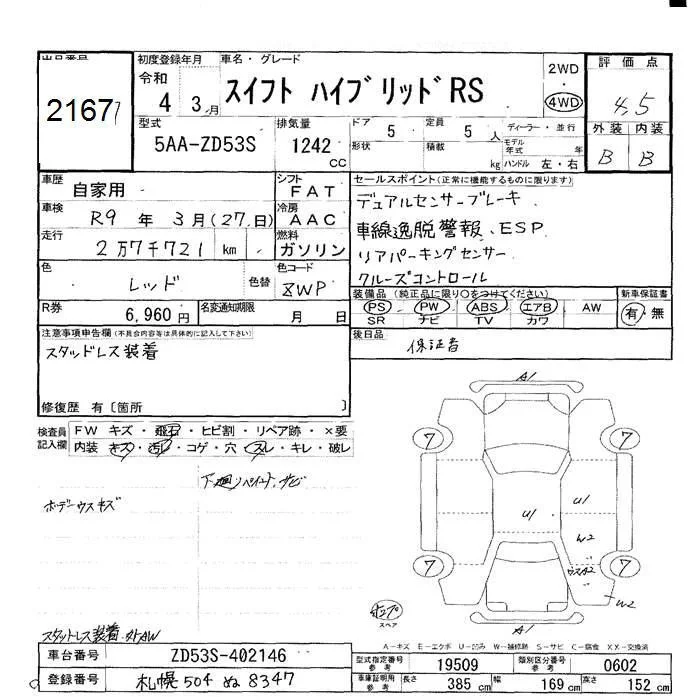 出品番号
2167
初度登録年月
令和
4 3月
車名・グレード
スイフト ハイブリッドRS
2WD
4WD
評価点
4,5
外装 内装
B B
型式
5AA-ZD53S
排気量
1242
cc
ドア 5
形状
定員 5 人
積載 kg
ディーラー・並行
モデル年式 年
ハンドル 左・右
車歴
自家用
シフト
FAT
車検
R9 年 3月(27,日)
冷房
AAC
走行
2万7千721 km
燃料
ガソリン
色
レッド
色替
色コード
ZWP
R券
6,960円
名変通知期限
月 日
セールスポイント(正常に機能するものに限ります)
デュアルセンサーブレーキ
車線逸脱警報、ESP
リアパーキングセンサー
クルーズコントロール
装備品(純正品に限り○をつけてください)
PS PW ABS エアB AW
SR ナビ TV カワ
新車保証書
有・無
後日品
保証書
注意事項申告欄(不具合内容等は具体的に記入して下さい)
スタッドレス装着
修復歴 有〔箇所 〕
検査員記入欄
FW キズ・飛石・ヒビ割・リペア跡・×要
内装 キズ・汚レ・コゲ・穴・スレ・キレ・破レ
下廻リペイント,サビ
ボデーウスキズ
スタットレス装着
A1
7 7
U1 U1
W2
ウスA2
7 7
W2
A1
スペア
A-キズ E-エクボ U-凹み W-補修跡 S-サビ C-腐食 XX-交換済
車台番号
ZD53S-402146
登録番号
札幌 504 ぬ 8347
型式指定番号
参考
19509
類別区分番号
参考
0602
車庫証明用
参考
長さ 385 cm
幅 169 cm
高さ 152 cm